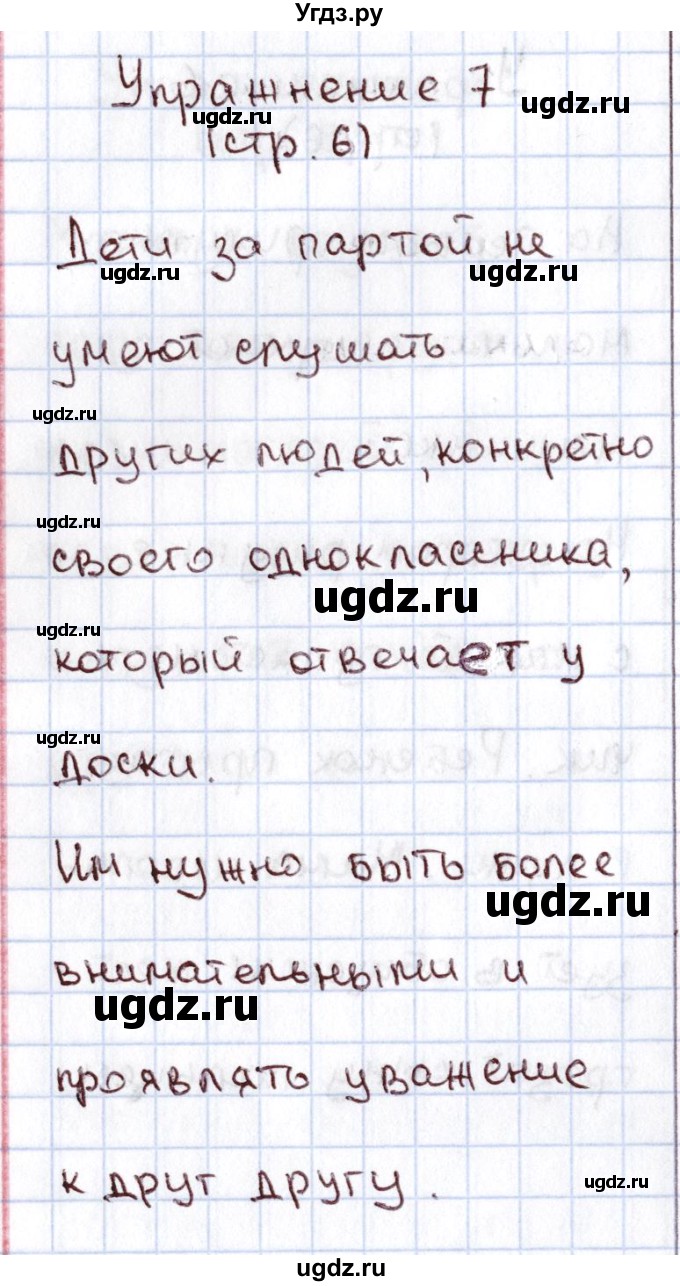 Угдз.ру
Упражнение 7
ugdz.ru
(стр. 6)
ugdz.ru
Дети за партой не
ugdz.ru
ugdz.ru
умеют слушать
ugdz.ru
других людей, конкретно
ugdz.ru
своего одноклассника,
ugdz.ru
ugdz.ru
который отвечает у
ugdz.ru
доски.
Им нужно быть более
ugdz.ru
внимательными и
ugdz.ru
проявлять уважение
к друг другу.
ugdz.ru
ugdz.ru